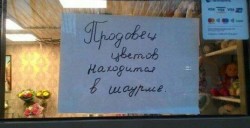 Продавец
цветов
находится
в шаурме